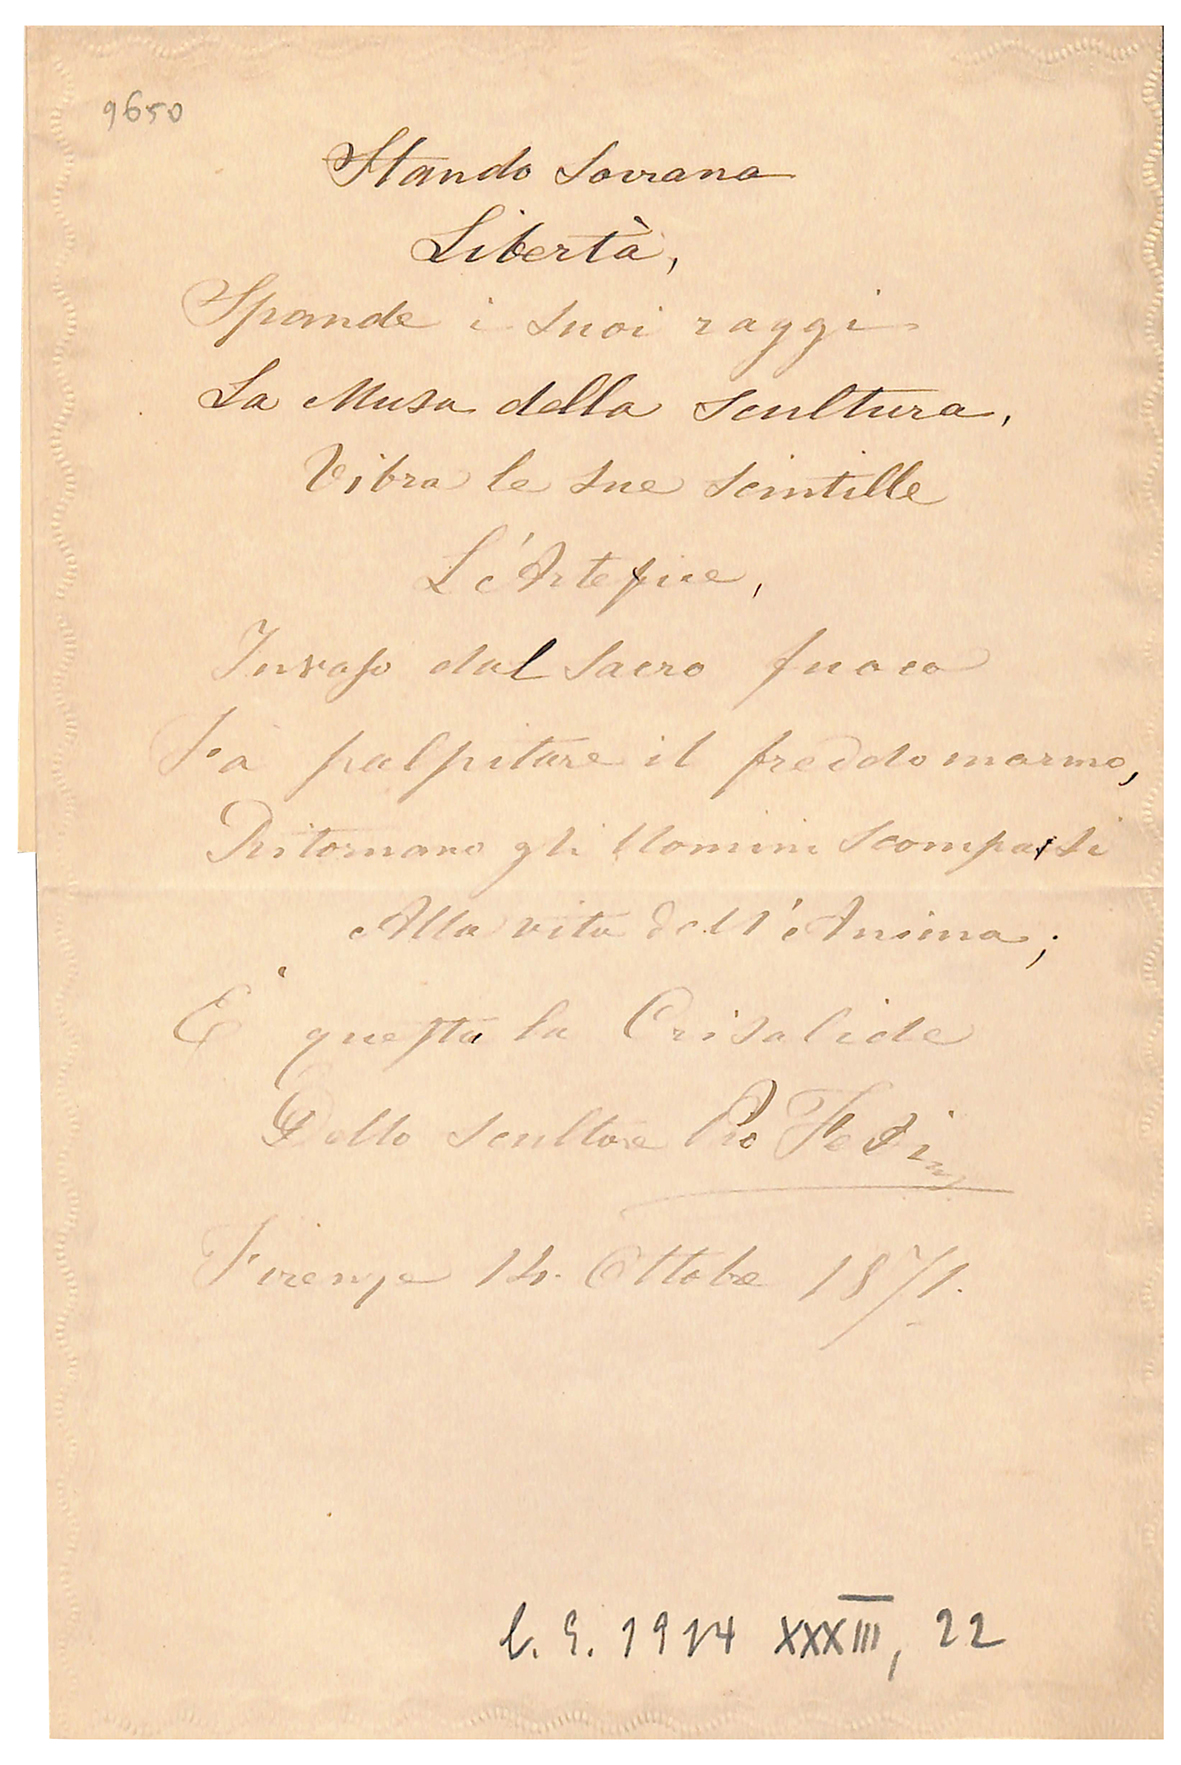 9650
Stando Sovrana
Libertà,
Spande i suoi raggi
La Musa della scultura,
Vibra le sue scintille
L'Artefice,
Invaso dal sacro fuoco
Fà palpitare il freddo marmo,
Ritornano gli Uomini scomparsi
Alla vita dell'Anima;
E' questa la Crisalide
Dello scultore Pio Fedi
Firenze 14. Ottobre 1871.
l. g. 1914 XXXIII, 22